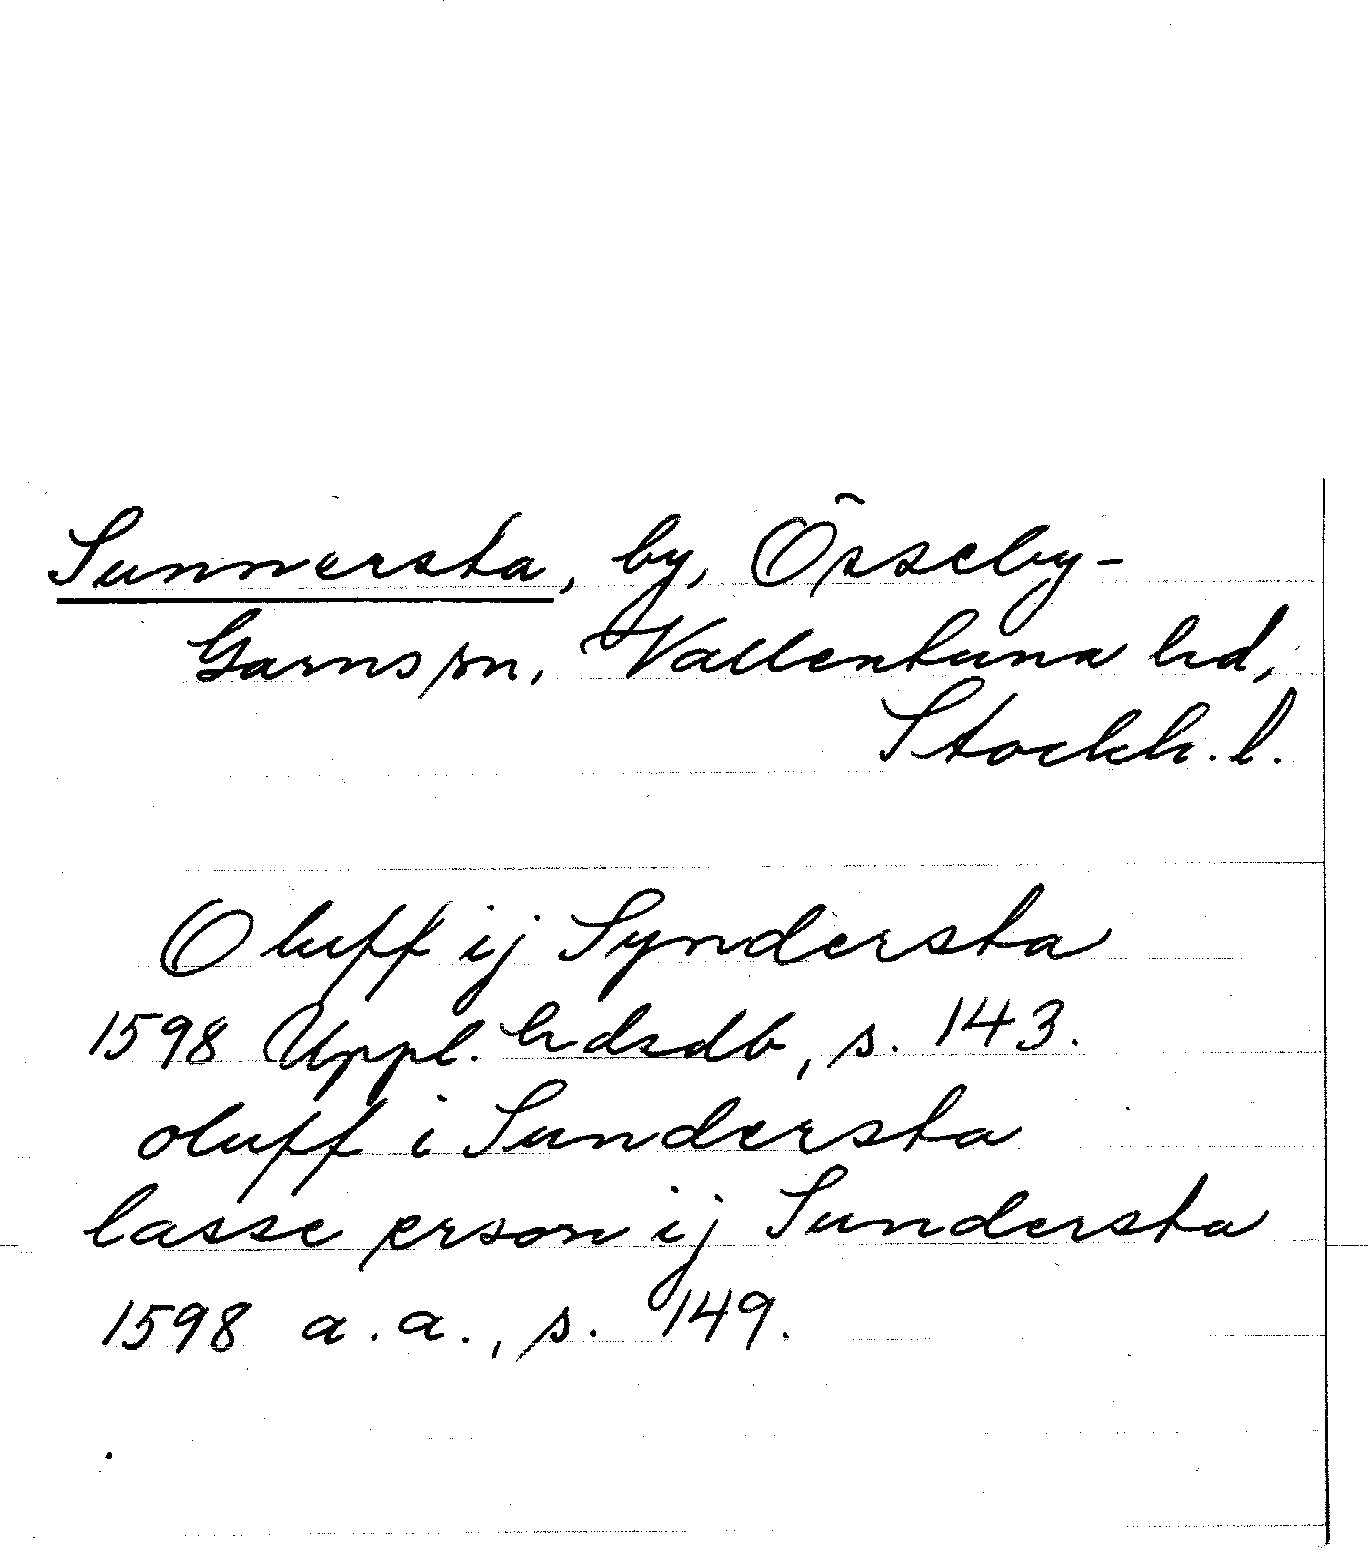 Sunnersta, by, Össeby-
Garns sn, Vallentuna hd,
Stockh. l.
Oluff ij Syndersta
1598 Uppl. hdsdb, s. 143.
oluff i Sundersta
lasse person ij Sundersta
1598 a.a., s. 149.